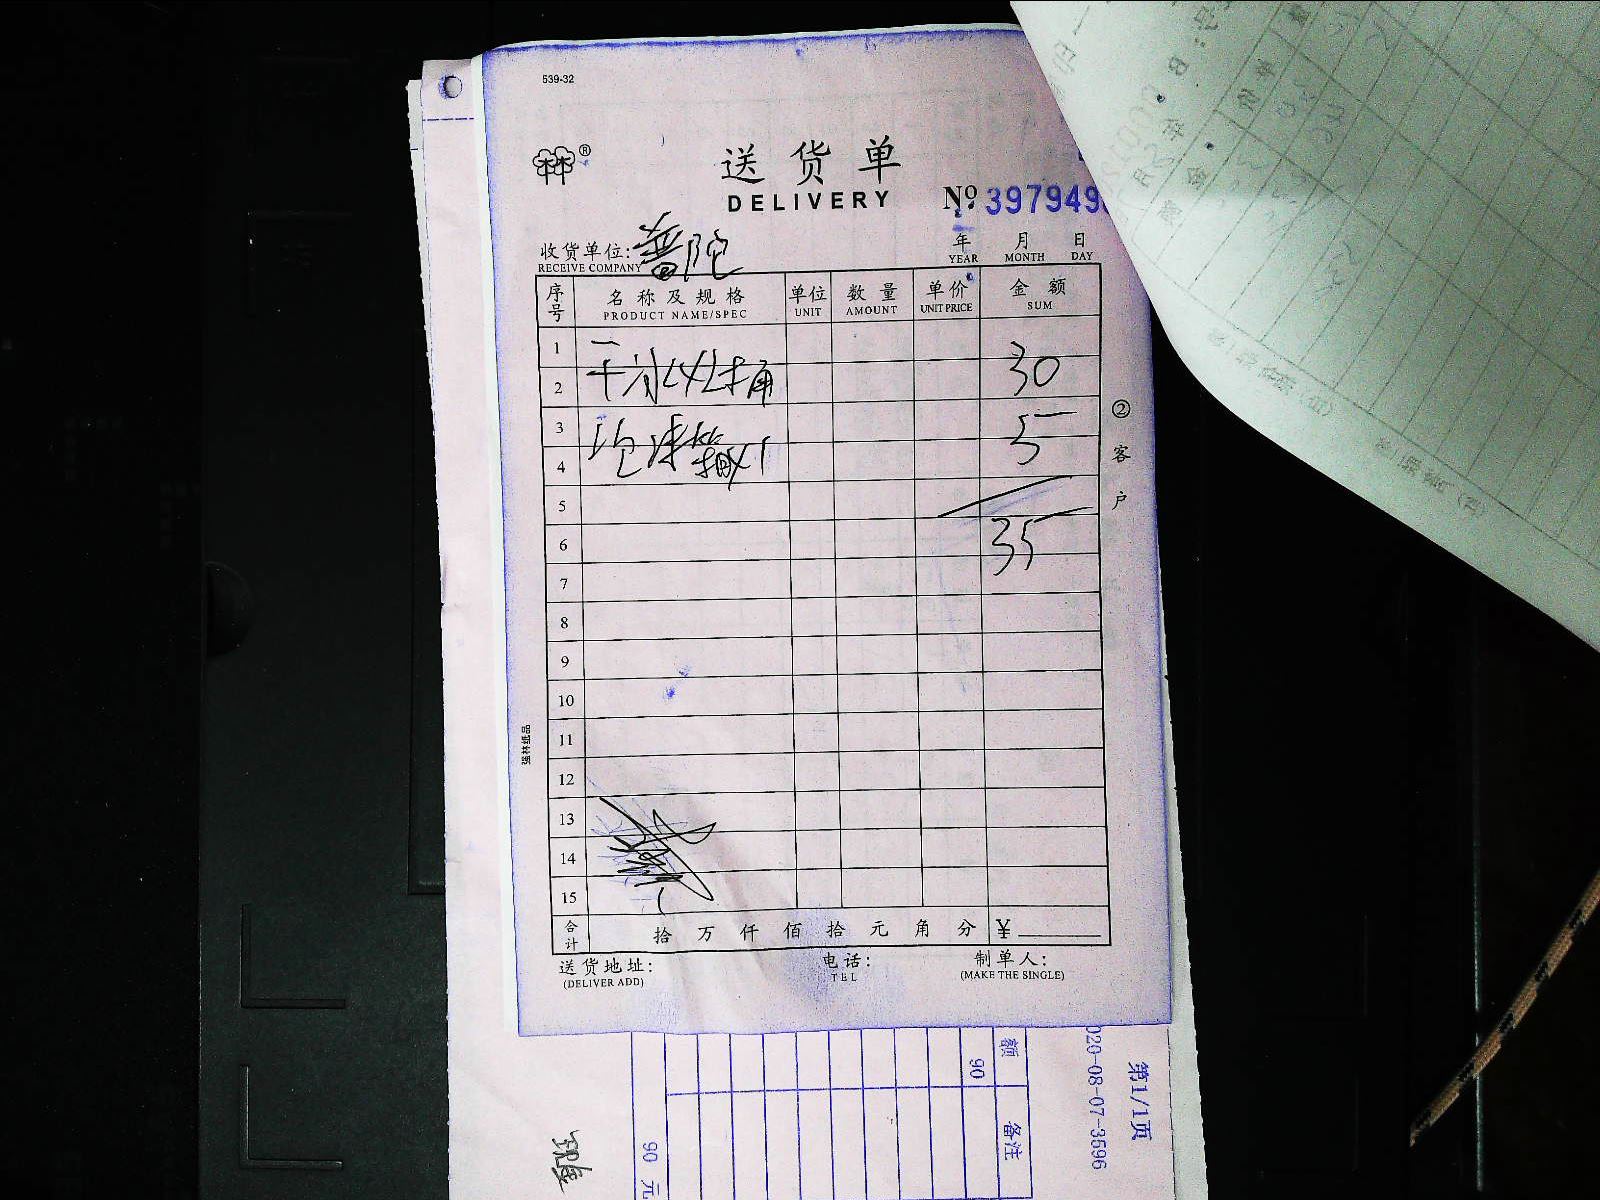 539-32
®
送货单
DELIVERY
№ 397949
收货单位: 普陀
RECEIVE COMPANY
年 月 日
YEAR MONTH DAY
序号 名称及规格 单位 数量 单价 金额
PRODUCT NAME/SPEC UNIT AMOUNT UNIT PRICE SUM
1
2 干冰 30
3
4 泡沫箱x1 5
5
6 35
7
8
9
10
11
12
13
14
15
合计 拾 万 仟 佰 拾 元 角 分 ¥
送货地址: 电话: 制单人:
(DELIVER ADD) TEL (MAKE THE SINGLE)
② 客户
强林纸品
额 备注
90
90 元
020-08-07-3596
第1/1页
现金